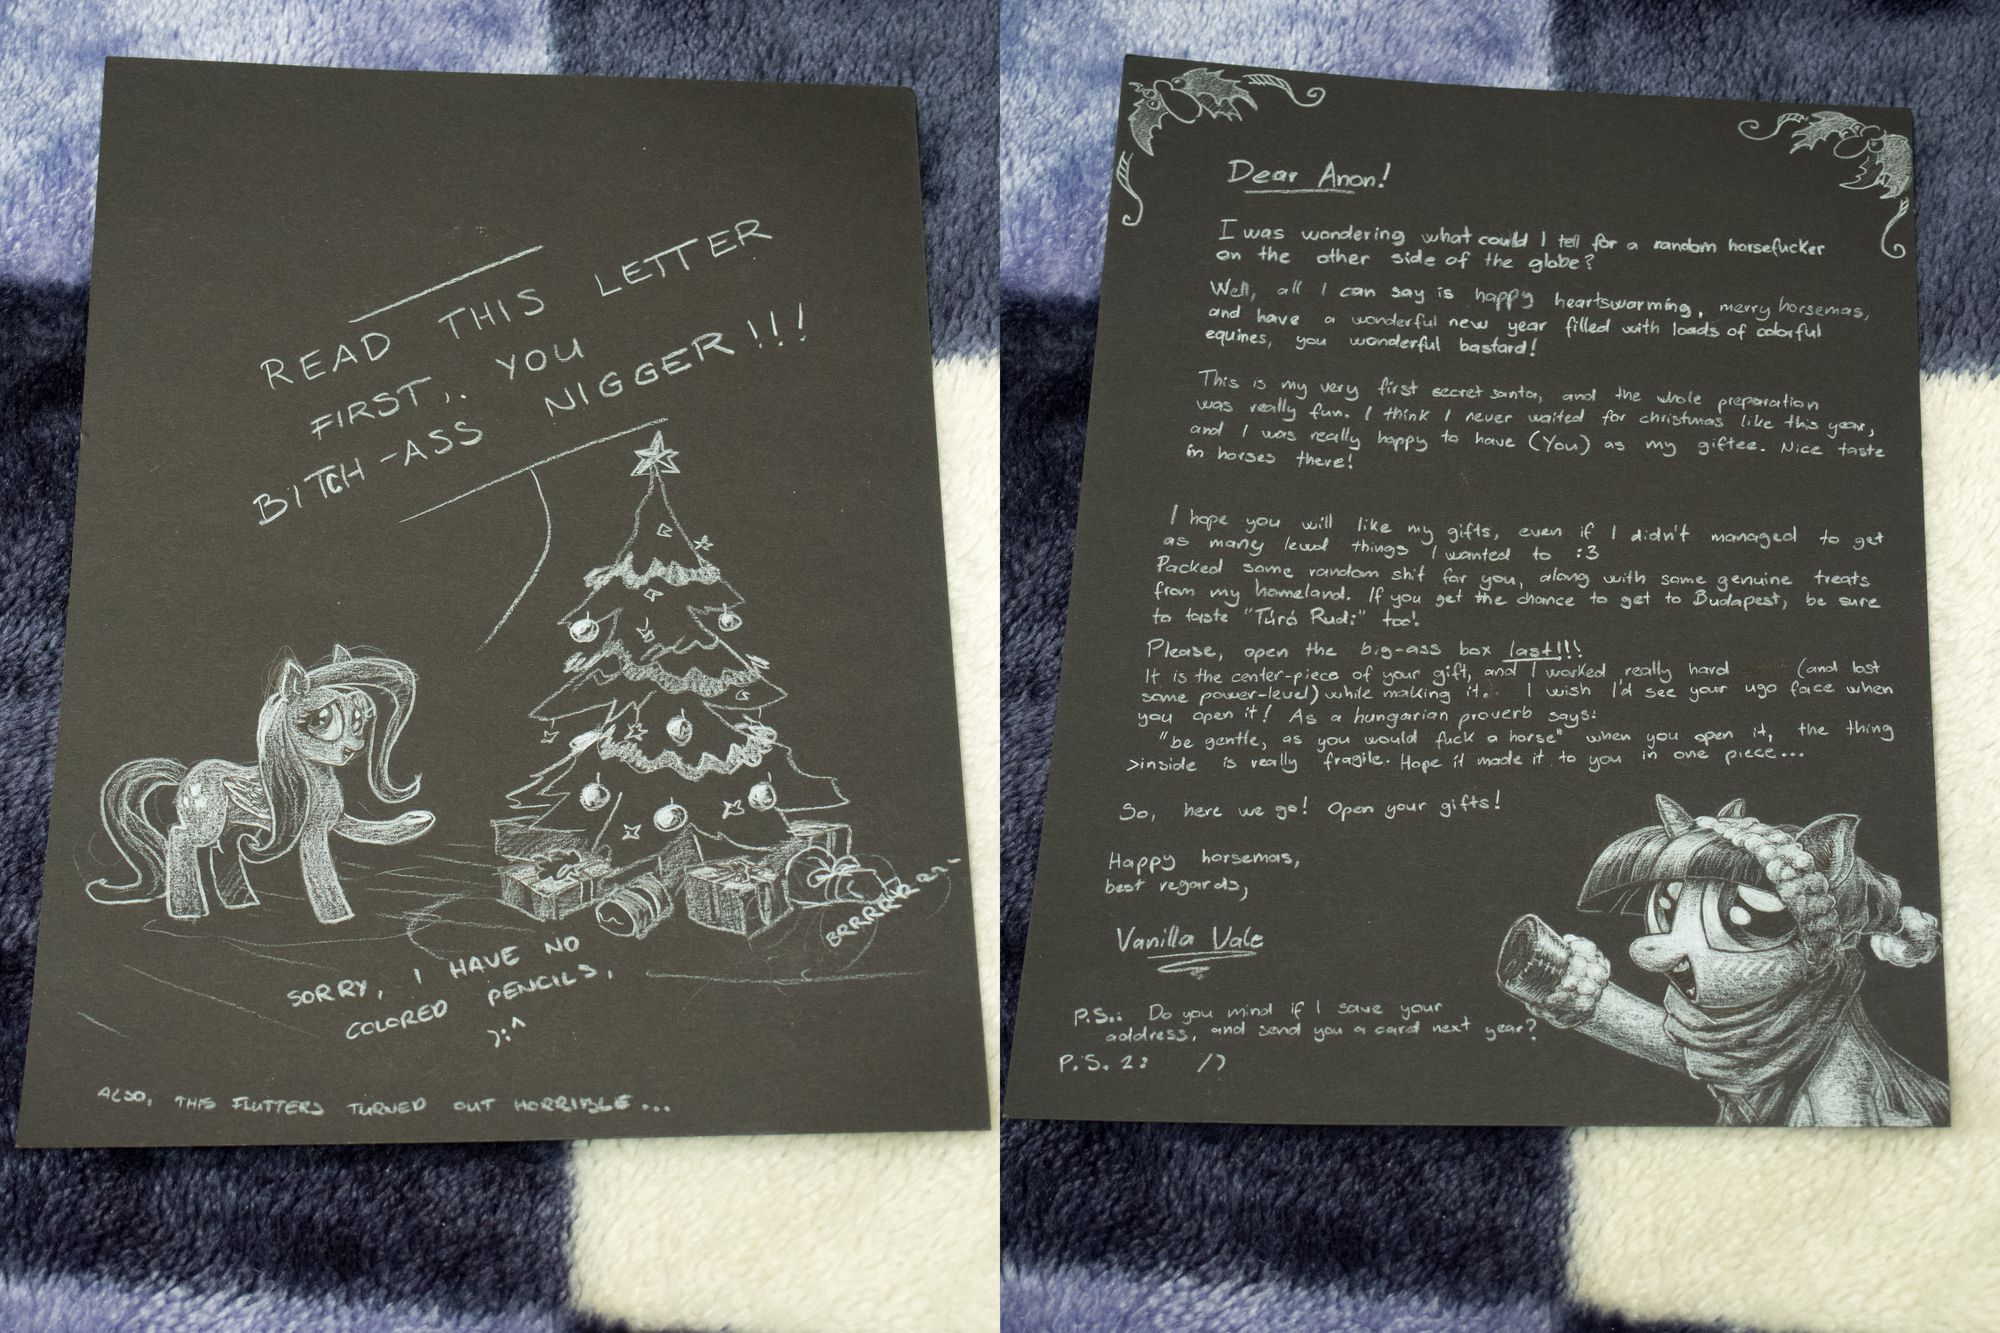 READ THIS LETTER
FIRST, YOU
BITCH-ASS NIGGER!!!
BRRRRRRR~
SORRY, I HAVE NO
COLORED PENCILS,
):^
ALSO, THIS FLUTTERS TURNED OUT HORRIBLE...
Dear Anon!
I was wondering what could I tell for a random horsefucker
on the other side of the globe?
Well, all I can say is happy heartswarming, merry horsemas,
and have a wonderful new year filled with loads of colorful
equines, you wonderful bastard!
This is my very first secret santa, and the whole preparation
was really fun. I think I never waited for christmas like this year,
and I was really happy to have (You) as my giftee. Nice taste
in horses there!
I hope you will like my gifts, even if I didn't managed to get
as many lewd things I wanted to :3
Packed some random shit for you, along with some genuine treats
from my homeland. If you get the chance to get to Budapest, be sure
to taste "Túró Rudi" too!
Please, open the big-ass box last!!!
It is the center-piece of your gift, and I worked really hard (and lost
some power-level) while making it. I wish I'd see your ugo face when
you open it! As a hungarian proverb says:
"be gentle, as you would fuck a horse" when you open it, the thing
>inside is really fragile. Hope it made it to you in one piece...
So, here we go! Open your gifts!
Happy horsemas,
best regards,
Vanilla Vale
P.S.: Do you mind if I save your
address, and send you a card next year?
P.S. 2: /)